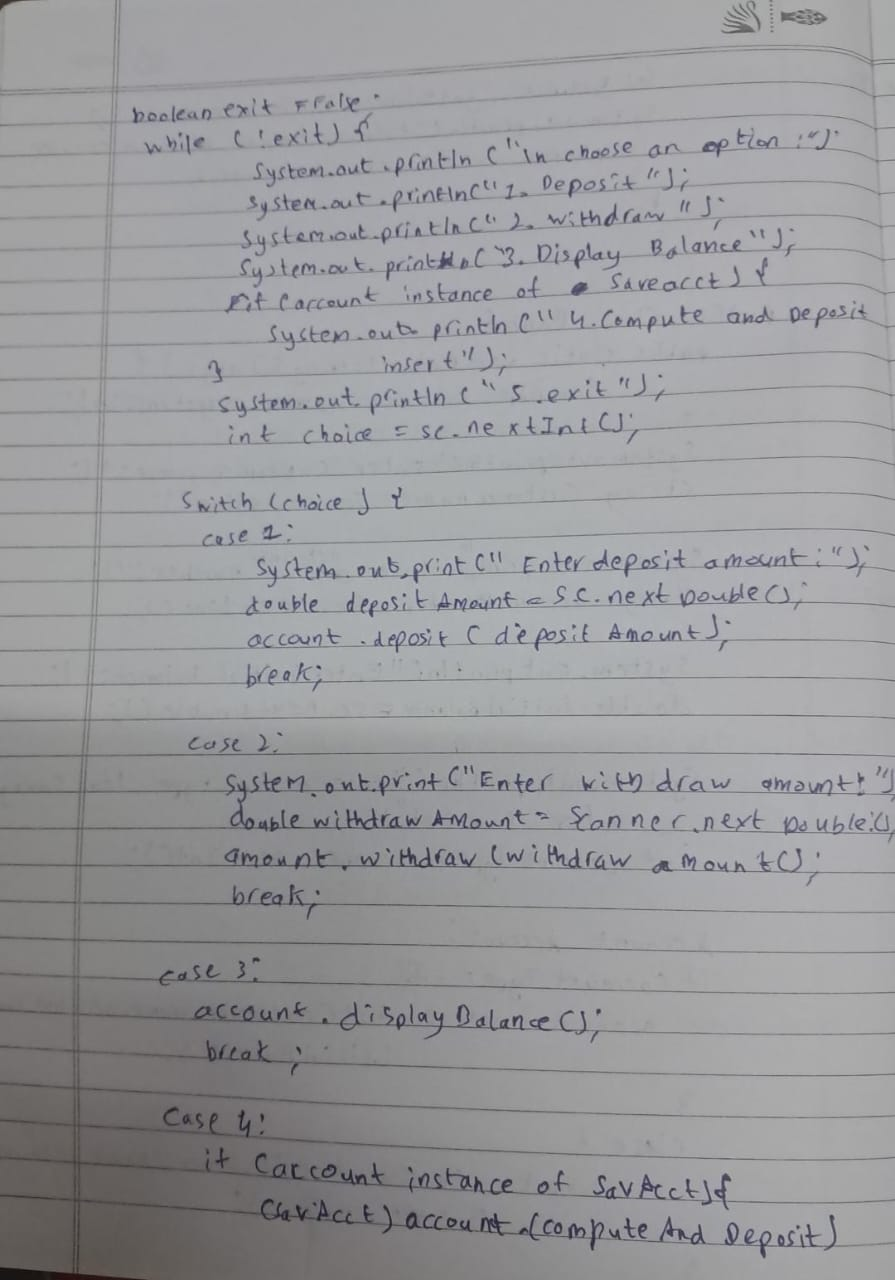 boolean exit = False.
while (!exit) {
System.out.println ("\n choose an option :");
System.out.println(" 1. Deposit ");
System.out.println (" 2. withdraw ");
System.out.println ("3. Display Balance");
if (account instance of Saveacct) {
System.out. println (" 4. Compute and Deposit
} insert");
System.out. println (" 5. exit ");
int choice = sc.nextInt();
Switch (choice) {
case 1:
System.out.print (" Enter deposit amount : ");
double deposit Amount = S.C. next Double();
account . deposit ( deposit Amount);
break;
case 2:
System.out.print ("Enter with draw amount: ")
double withdraw Amount = Scanner.next Double:();
amount. withdraw (withdraw amount();
break;
case 3:
account . display Balance ();
break ;
Case 4:
if (account instance of SavAcct) {
(SavAcct) account .(compute And Deposit)